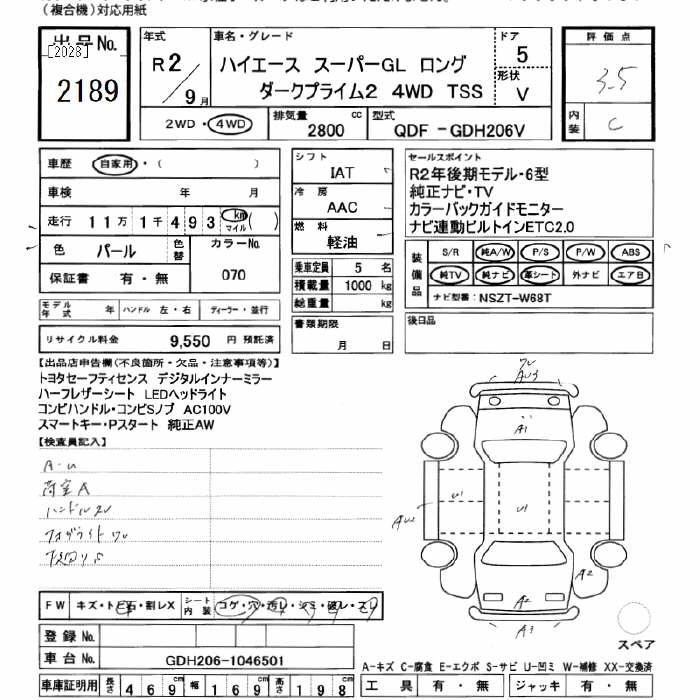 (複合機)対応用紙
出品No.
[2028]
2189
年式
R2/9月
車名・グレード
ハイエース スーパーGL ロング
ダークプライム2 4WD TSS
ドア
5
形状
V
評価点
3.5
内装
C
2WD・4WD
排気量
2800 cc
型式
QDF-GDH206V
車歴
自家用・( )
車検 年 月
走行 11万1千493 km マイル ( )
色 パール 色替
カラーNo. 070
保証書 有・無
シフト
IAT
冷房
AAC
燃料
軽油
乗車定員 5 名
積載量 1000 kg
総重量 kg
セールスポイント
R2年後期モデル・6型
純正ナビ・TV
カラーバックガイドモニター
ナビ連動ビルトインETC2.0
装備品
S/R 純A/W P/S P/W ABS
純TV 純ナビ 革シート 外ナビ エアB
ナビ型番: NSZT-W68T
モデル年式 年 ハンドル 左・右 ディーラー・並行
リサイクル料金 9,550 円 預託済
書類期限
月 日
後日品
【出品店申告欄(不良箇所・欠品・注意事項等)】
トヨタセーフティセンス デジタルインナーミラー
ハーフレザーシート LEDヘッドライト
コンビハンドル・コンビSノブ AC100V
スマートキー・Pスタート 純正AW
【検査員記入】
A-U
荷室A
ハンドルワレ
フォグライトワレ
A1
U1
U1
AU2
A2
A2
A3
FW キズ・トビ石・割レX シート内装 コゲ・穴・汚レ・シミ・破レ・スレ
登録No.
車台No. GDH206-1046501
スペア
A-キズ C-腐食 E-エクボ S-サビ U-凹ミ W-補修 XX-交換済
車庫証明用 長さ 469cm 幅 169cm 高さ 198cm
工具 有・無 ジャッキ 有・無